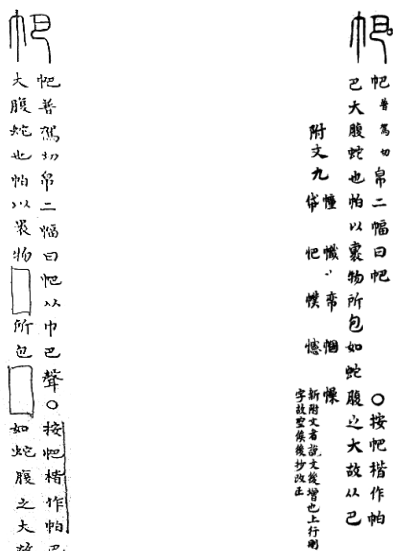 帊
帊普駕切帛二幅曰帊○按帊楷作帕
巴大腹蛇也帕以裹物所包如蛇腹之大故从巴
附文九
幢幟帟幗幧
帒帊幞幰
新附文者說文後增也上行剛
字故空俟後抄改正
帊
帊普駕切帛二幅曰帊从巾巴聲○按帊楷作帕巴
大腹蛇也帕以裹物所包如蛇腹之大故